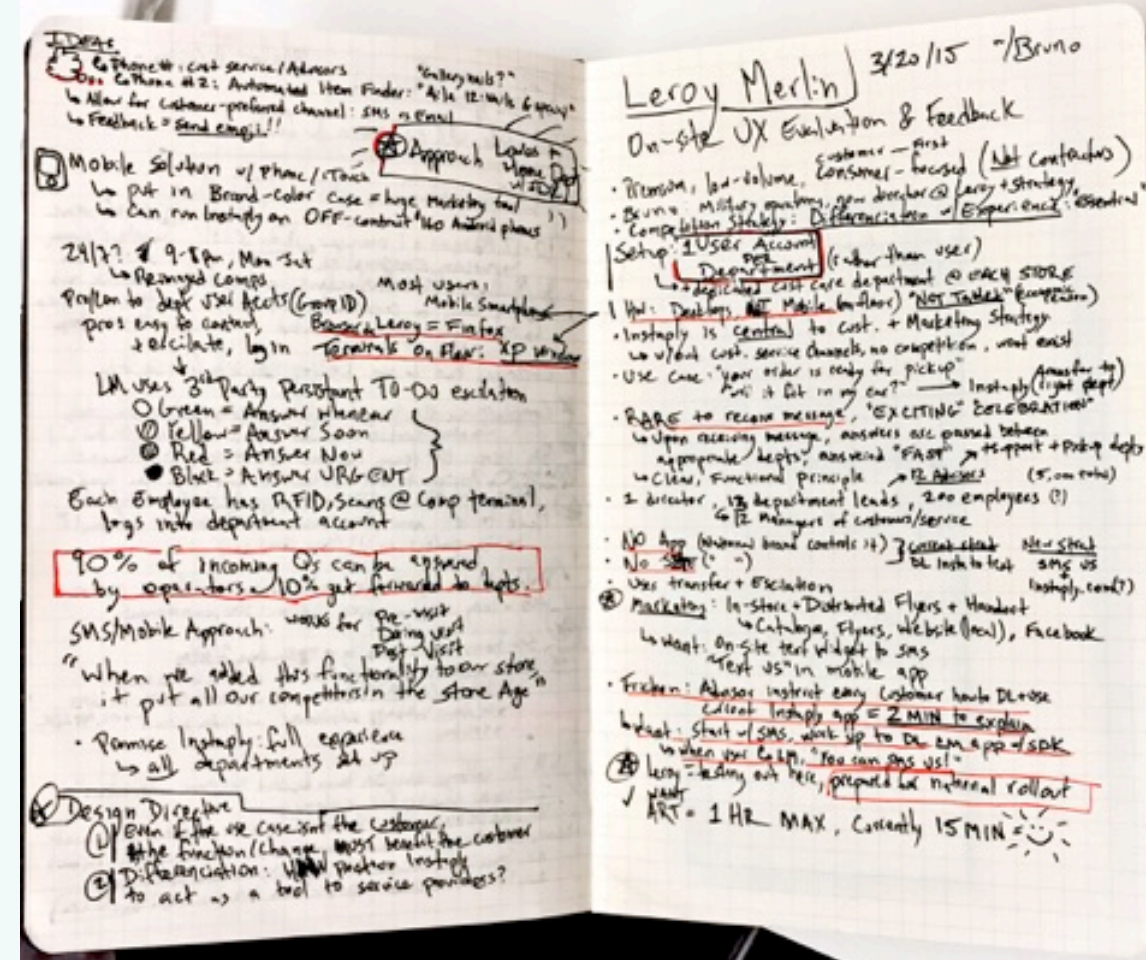 IDEAS
Phone #: cust service/Advisors
Phone #2: Automated Item Finder: "Aisle 12: nails & epoxy"
"Gallery nails?"
↳ Allow for customer-preferred channel: SMS Email
↳ Feedback = send emoji!!
Approach Lowes + Home Depot w/ SDK
Mobile Solution w/ Phone/iTouch
↳ put in Brand-color case = huge Marketing tool
↳ Can run Instaply on OFF-contract Android phones
24/7? 9-8pm, Mon-Sat
pros easy to contact,
+ escilate, log in
Most users:
Mobile Smartphone
Browser @ Leroy = Firefox
Terminals On Floor: XP Window
LM uses 3rd Party Persistant TO-DO escilation
Green = Answer whenever
Yellow = Answer Soon
Red = Answer Now
Black = Answer URGENT
Each Employee has RFID, Scans @ Comp terminal,
logs into department account
90% of incoming Qs can be answered
by operators 10% get forwarded to depts.
SMS/Mobile Approach: works for Pre-visit
During visit
Post Visit
"When we added this functionality to our store,
it put all our competitors in the stone Age"
• Promise Instaply: full experience
↳ all departments set up
Design Directive
1 Even if the use case isnt the customer,
the function/change MUST benefit the customer
2 Differenciation: partner Instaply
to act as a tool to service providers?
Leroy Merlin 3/20/15 w/Bruno
On-site UX Evaluation & Feedback
Customer-First
• Premium, low-volume, Consumer-focused (Not Contractors)
• Bruno: Military operations, now director @ Leroy + strategy
• Competition Strategy: Differenciation w/ Experience: essential
Setup: 1 User Account
PER
Department (rather than user)
↳ + dedicated cust care department @ EACH STORE
HW: Desktops, NOT Mobile (on floor) "NOT Tablet"
• Instaply is central to cust. + Marketing Strategy
↳ w/out cust. service channels, no competition, wont exist
• Use Case: "your order is ready for pickup"
"will it fit in my car?" → Instaply (transfer to right dept)
• RARE to receive message, "EXCITING" "CELEBRATION"
↳ Upon receiving message, answers are passed between
appropriate depts, answered "FAST" → + support + Pickup depts
↳ Clear, Functional principle 12 Advisors
• 1 director, 13 department leads, 200 employees (?)
↳ 12 Managers of customers/service
• NO App (National brand controls it)
• No (" ")
current strat
DL Insta to text
New Strat
SMS us
Instaply.com(?)
• User transfer + Escilation
Marketing: In-Store + Distributed Flyers + Handout
↳ Catalogs, Flyers, Website (local), Facebook
↳ Want: On-site text widget to SMS
"Text US" in mobile app
• Friction: Advisor instruct every Customer how to DL + use
current Instaply app = 2 MIN to explain
↳ Want: Start w/ SMS, work up to DL LM app w/ SDK
↳ when user LM, "You can SMS us!"
Leroy = testing out here, prepared for national rollout
WANT
ART = 1 HR MAX, Currently 15 MIN =